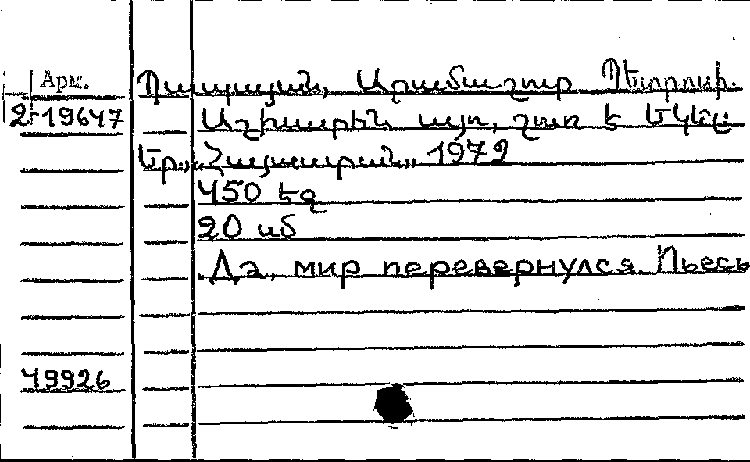 Арм.
2-19647
Պապայան, Արամաշոտ Պետրոսի.
Աշխարհն, այո, շուռ է եկել:
Եր., Հայաստան, 1972
450 եզ
20 սմ
Да, мир перевернулся. Пьесы
49926